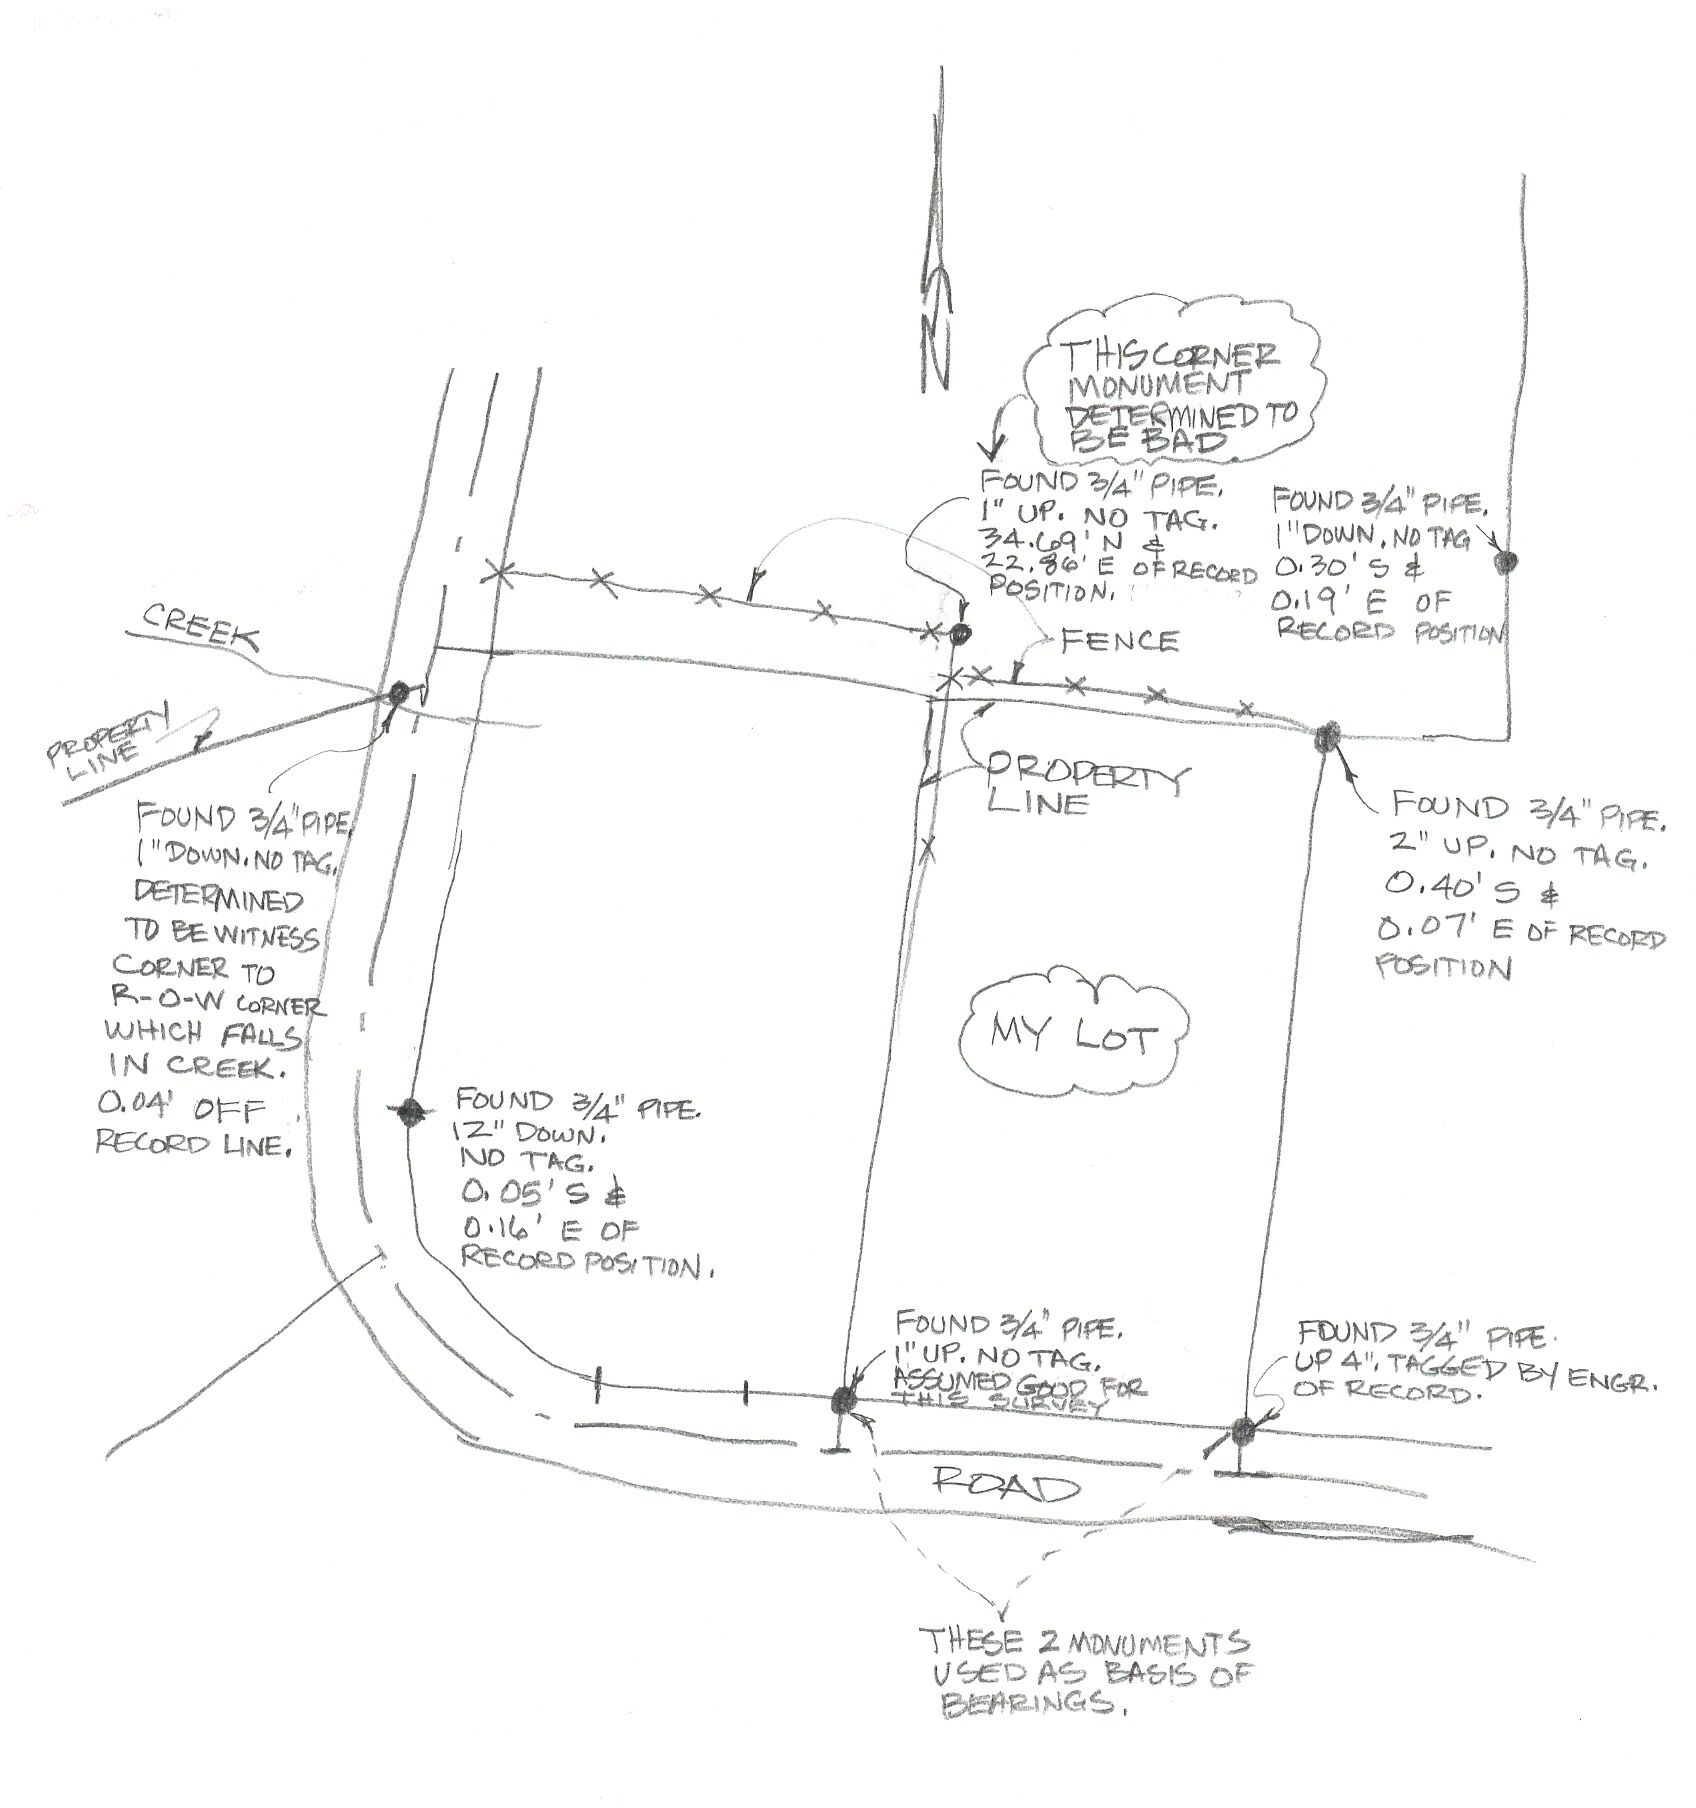 N
THIS CORNER
MONUMENT
DETERMINED TO
BE BAD.
FOUND 3/4" PIPE.
1" UP. NO TAG.
34.69' N &
22.86' E OF RECORD
POSITION.
FOUND 3/4" PIPE.
1" DOWN. NO TAG
0.30' S &
0.19' E OF
RECORD POSITION
CREEK
FENCE
PROPERTY
LINE
PROPERTY
LINE
FOUND 3/4" PIPE.
1" DOWN. NO TAG.
DETERMINED
TO BE WITNESS
CORNER TO
R-O-W CORNER
WHICH FALLS
IN CREEK.
0.04' OFF
RECORD LINE.
FOUND 3/4" PIPE.
2" UP. NO TAG.
0.40' S &
0.07' E OF RECORD
POSITION
MY LOT
FOUND 3/4" PIPE.
12" DOWN.
NO TAG.
0.05' S &
0.16' E OF
RECORD POSITION.
FOUND 3/4" PIPE.
1" UP. NO TAG.
ASSUMED GOOD FOR
THIS SURVEY
FOUND 3/4" PIPE.
UP 4". TAGGED BY ENGR.
OF RECORD.
ROAD
THESE 2 MONUMENTS
USED AS BASIS OF
BEARINGS.